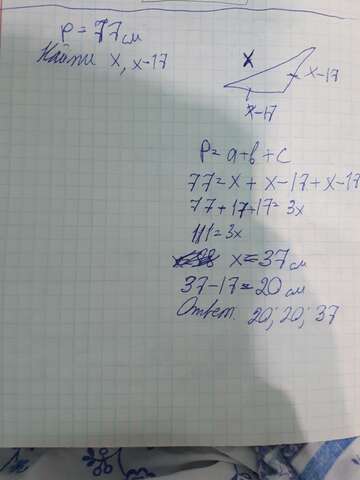 P = 77 см
Найти x, x-17
x
x-17
x-17
P = a+b+c
77 = x + x-17 + x-17
77+17+17 = 3x
111 = 3x
x = 37 см
37-17 = 20 см
Ответ. 20; 20; 37